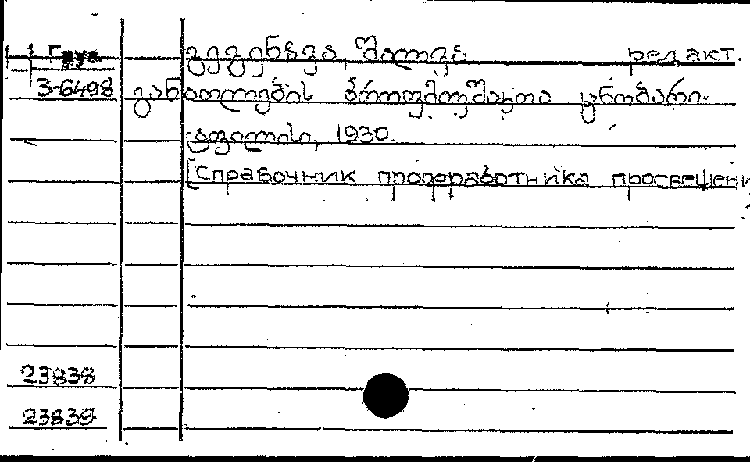 Груз. გეგენავა, შალვა редакт.
3-6498 განათლების პროფმუშაკთა ცნობარი.
ტფილისი, 1930
[Справочник профработника просвещени
23838
23839